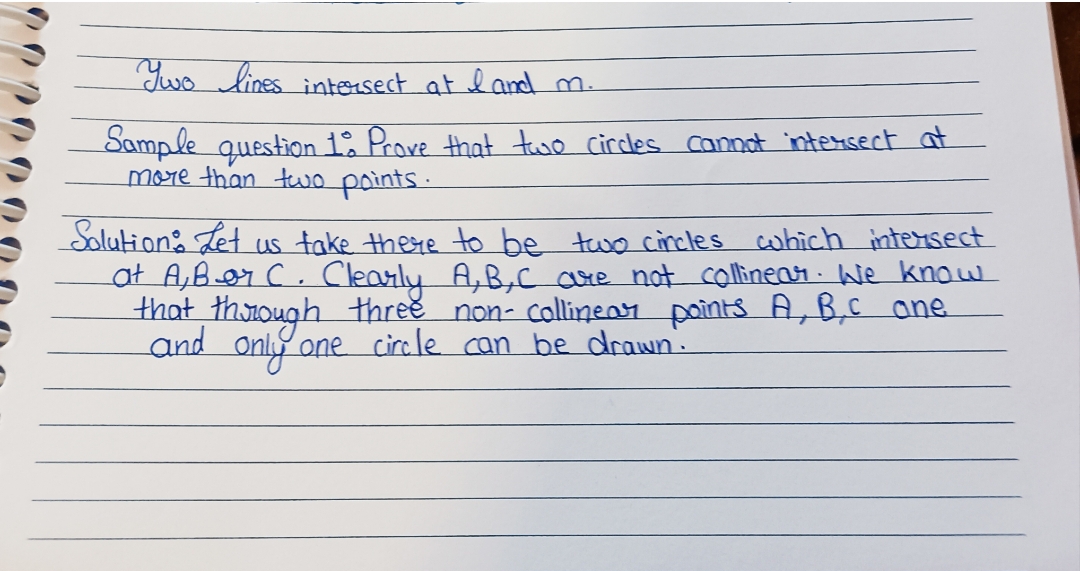 Two lines intersect at l and m.
Sample question 1: Prove that two circles cannot intersect at
more than two points.
Solution: Let us take there to be two circles which intersect
at A, B or C. Clearly A, B, C are not collinear. We know
that through three non-collinear points A, B, C one
and only one circle can be drawn.